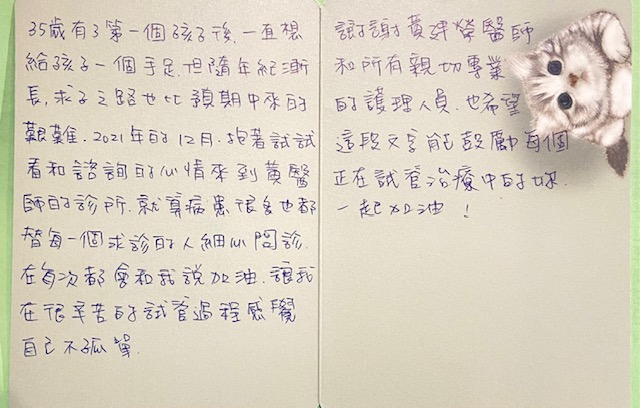 35歲有了第一個孩子後,一直想
給孩子一個手足,但隨年紀漸
長,求子之路也比預期中來的
艱難.2021年的12月,抱著試試
看和諮詢的心情來到黃醫
師的診所.就算病患很多也都
替每一個求診的人細心問診.
在每次都會和我說加油.讓我
在很辛苦的試管過程感覺
自己不孤單.
謝謝黃建榮醫師
和所有親切專業
的護理人員.也希望
這段文字能鼓勵每個
正在試管治療中的妳.
一起加油!